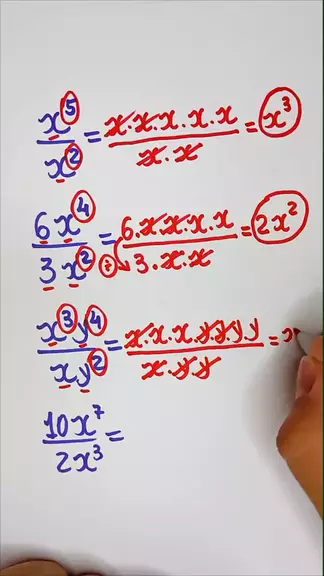 x⁵/x² = x·x·x·x·x/x·x = x³
6x⁴/3x² = 6·x·x·x·x/3·x·x = 2x²
x³y⁴/xy² = x·x·x·y·y·y·y/x·y·y = x
10x⁷/2x³ =